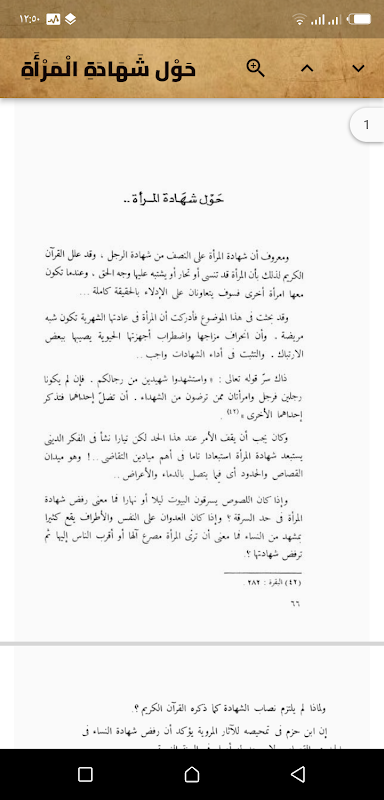 ١٢:٥٠
حَوْل شَهَادَةِ الْمَرْأَةِ
1
حَوْل شهَادة المرأة ..
ومعروف أن شهادة المرأة على النصف من شهادة الرجل ، وقد علل القرآن
الكريم لذلك بأن المرأة قد تنسى أو تحار أو يشتبه عليها وجه الحق ، وعندما تكون
معها امرأة أخرى فسوف يتعاونان على الإدلاء بالحقيقة كاملة ...
وقد بحثت فى هذا الموضوع فأدركت أن المرأة فى عادتها الشهرية تكون شبه
مريضة . وأن انحراف مزاجها واضطراب أجهزتها الحيوية يصيبها ببعض
الارتباك . والتثبت فى أداء الشهادات واجب ..
ذاك سرّ قوله تعالى : « واستشهدوا شهيدين من رجالكم . فإن لم يكونا
رجلين فرجل وامرأتان ممن ترضون من الشهداء . أن تضلّ إحداهما فتذكر
إحداهما الأخرى » (٤٢) .
وكان يجب أن يقف الأمر عند هذا الحد لكن تيارا نشأ فى الفكر الدينى
يستبعد شهادة المرأة استبعادا تاما فى أهم ميادين التقاضى ..! وهو ميدان
القصاص والحدود أى فيما يتصل بالدماء والأعراض ..
وإذا كان اللصوص يسرقون البيوت ليلا أو نهارا فما معنى رفض شهادة
المرأة فى حد السرقة ؟ وإذا كان العدوان على النفس والأطراف يقع كثيرا
بمشهد من النساء فما معنى أن ترى المرأة مصرع آلها أو أقرب الناس إليها ثم
ترفض شهادتها ؟.
(٤٢) البقرة : ٢٨٢ .
٦٦
ولماذا لم يلتزم نصاب الشهادة كما ذكره القرآن الكريم ؟.
إن ابن حزم فى تمحيصه للآثار المروية يؤكد أن رفض شهادة النساء فى